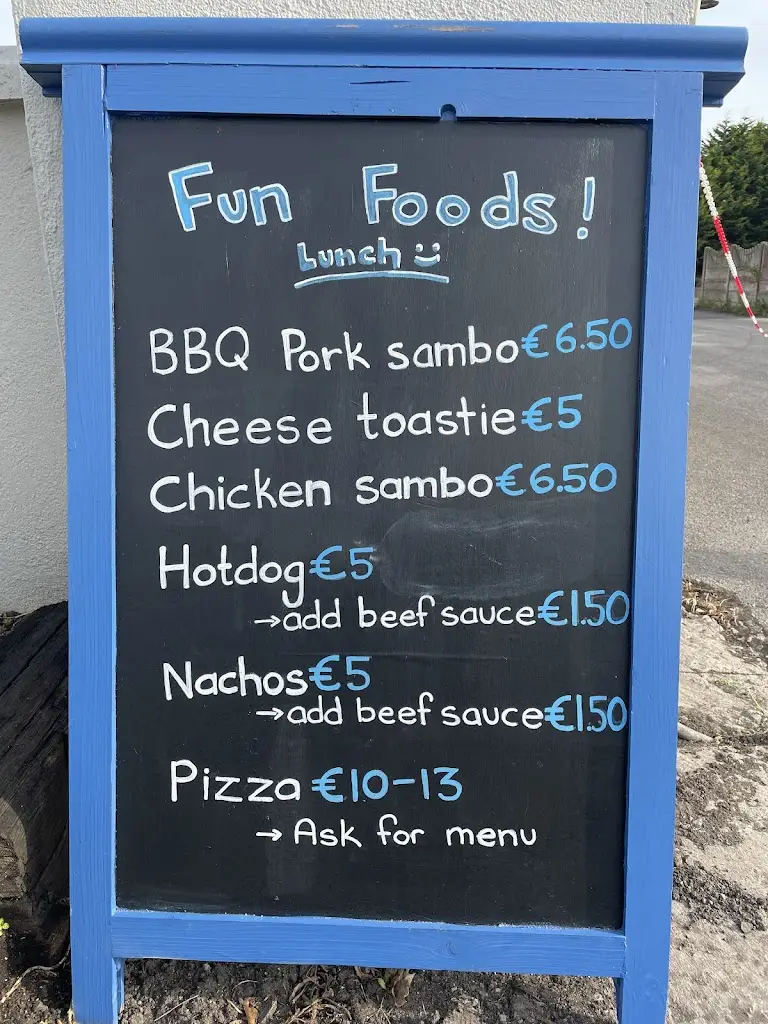 Fun Foods!
Lunch
BBQ Pork sambo €6.50
Cheese toastie €5
Chicken sambo €6.50
Hotdog €5
→add beef sauce €1.50
Nachos €5
→add beef sauce €1.50
Pizza €10-13
→ Ask for menu